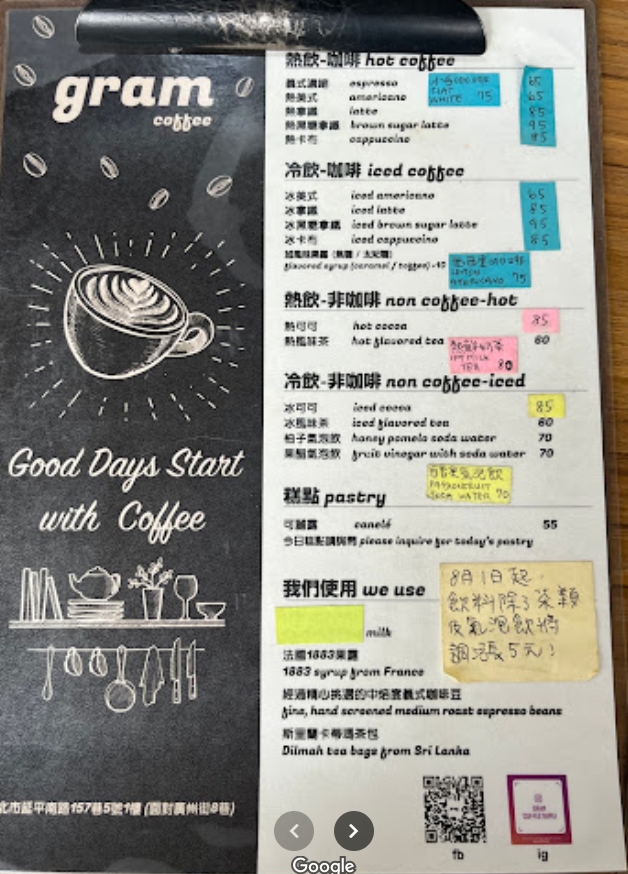 gram
coffee
Good Days Start
with Coffee
北市延平南路157巷5號1樓 (面對廣州街8巷)
熱飲-咖啡 hot coffee
義式濃縮 espresso 65
熱美式 americano 65
熱拿鐵 latte 85
熱黑糖拿鐵 brown sugar latte 95
熱卡布 cappuccino 85
FLAT
WHITE 75
冷飲-咖啡 iced coffee
冰美式 iced americano 65
冰拿鐵 iced latte 85
冰黑糖拿鐵 iced brown sugar latte 95
冰卡布 iced cappuccino 85
加風味果露 (焦糖 / 太妃糖)
flavored syrup (caramel / toffee) +15
西西里咖啡
LEMON
AMERICANO 75
熱飲-非咖啡 non coffee-hot
熱可可 hot cocoa 85
熱風味茶 hot flavored tea 60
熱鮮奶茶
HOT MILK
TEA 80
冷飲-非咖啡 non coffee-iced
冰可可 iced cocoa 85
冰風味茶 iced flavored tea 60
柚子氣泡飲 honey pomelo soda water 70
果醋氣泡飲 fruit vinegar with soda water 70
百香果氣泡飲
PASSIONFRUIT
SODA WATER 70
糕點 pastry
可麗露 canelé 55
今日糕點請詢問 please inquire for today's pastry
我們使用 we use
milk
法國1883果露
1883 syrup from France
經過精心挑選的中焙義式咖啡豆
fine, hand screened medium roast espresso beans
斯里蘭卡帝瑪茶包
Dilmah tea bags from Sri Lanka
8月1日起,
飲料除了茶類
及氣泡飲將
調漲5元!
fb
ig
Google